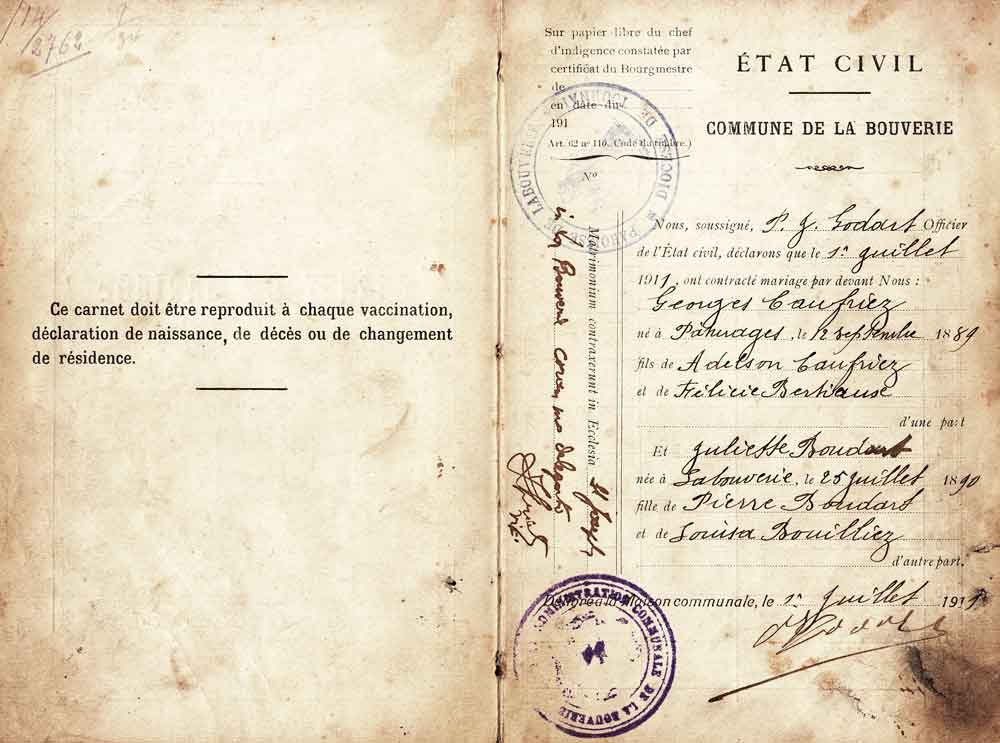 2762
Ce carnet doit être reproduit à chaque vaccination,
déclaration de naissance, de décès ou de changement
de résidence.
Sur papier libre du chef
d'indigence constatée par
certificat du Bourgmestre
de
en date du
191
Art. 62 nº 110. Code du timbre.)
Nº
PAROISSE DE LABOUVERIE DIOCESE DE TOURNAI
Matrimonium contraxerunt in Ecclesia St Joseph
in La Bouverie coram me delegato
ÉTAT CIVIL
COMMUNE DE LA BOUVERIE
Nous, soussigné, P. J. Godart Officier
de l'État civil, déclarons que le 1er Juillet
1911, ont contracté mariage par devant Nous :
Georges Caufriez
né à Pâturages, le 12 septembre 1889
fils de Adelson Caufriez
et de Félicie Bertiause
d'une part
Et Juliette Boudart
née à Labouverie, le 25 Juillet 1890
fille de Pierre Boudart
et de Louisa Bouilliez
d'autre part.
Délivré à la Maison communale, le 1er Juillet 191
ADMINISTRATION COMMUNALE DE LA BOUVERIE